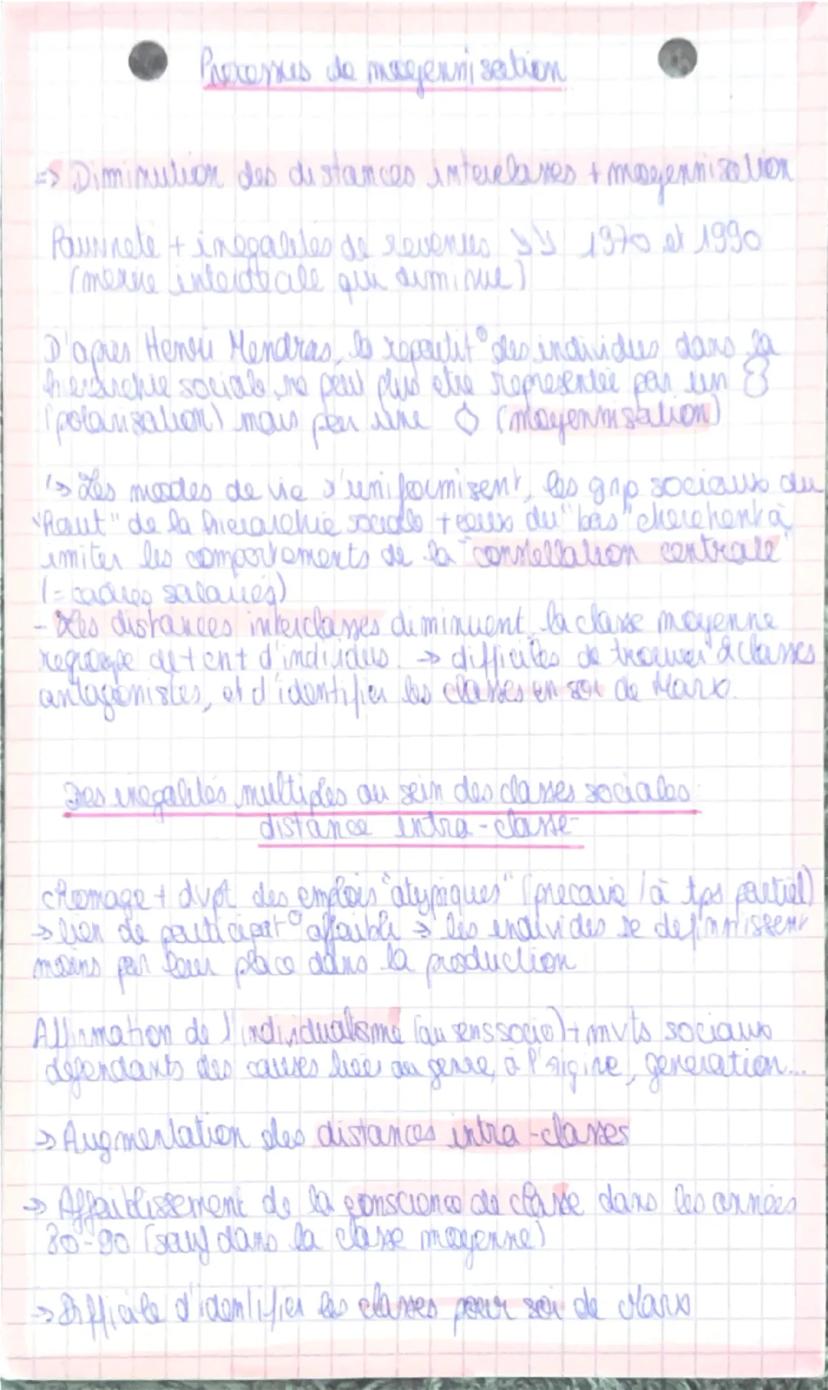 Processus de moyennisation
=> Diminution des distances interclasses + moyennisation
Pauvreté + inégalités de revenus ↘↘ 1970 et 1990
(mesure interdécile qui diminue)
D'après Henri Mendras, la repartit° des individus dans la
hierarchie sociale ne peut plus etre representée par un 8
(polarisation) mais par une ◊ (moyennisation)
↳ Les modes de vie s'uniformisent, les grp sociaux du
"haut" de la hierarchie sociale + ceux du "bas" cherchent à
imiter les comportements de la "constellation centrale"
(= cadres salariés)
- Les distances interclasses diminuent, la classe moyenne
regroupe de + en + d'individus. → difficiles de trouver 2 classes
antagonistes, et d'identifier les classes en soi de Marx.
Des inegalités multiples au sein des classes sociales:
distance intra-classe
chomage + dvpt des emplois "atypiques" (precaire / à tps partiel)
→ lien de participat° affaibli → les individus se definnissent
moins par leur place dans la production
Affirmation de l'individualisme (au sens socio) + mvts sociaux
défendants des causes liées au genre, à l'origine, generation...
→ Augmentation des distances intra-classes
→ Affaiblissement de la conscience de classe dans les années
80-90 (sauf dans la classe moyenne)
→ Difficile d'identifier les classes pour soi de Marx